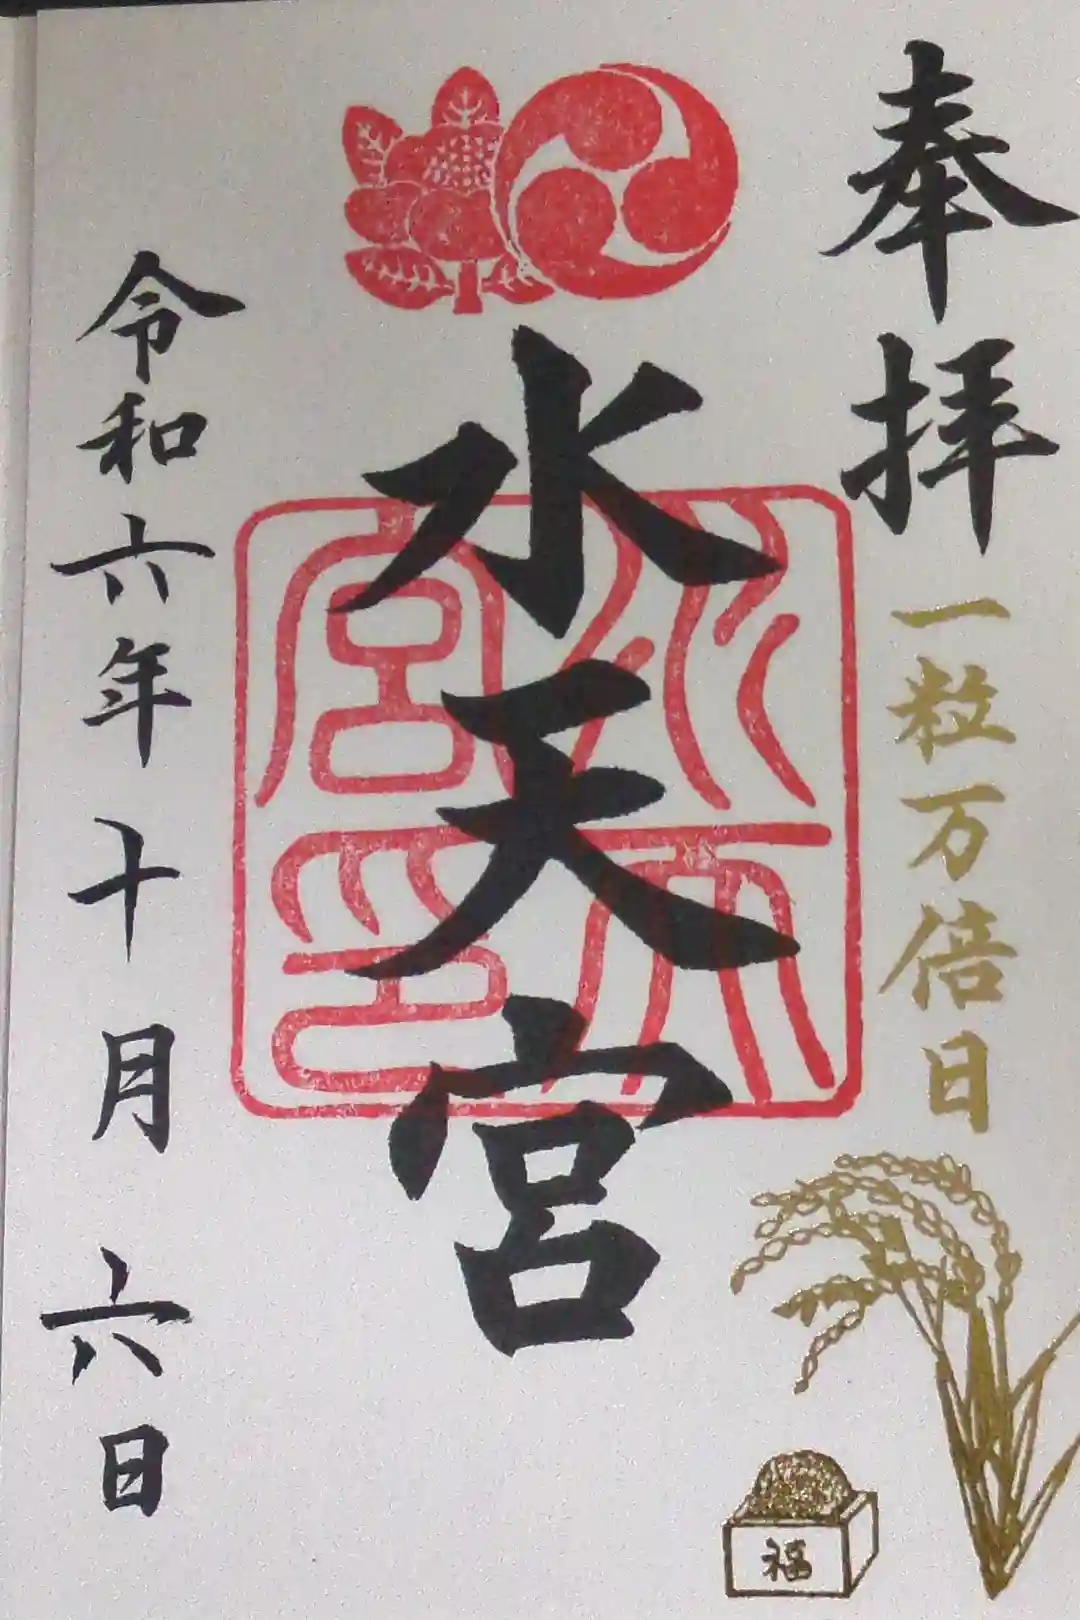 奉拝
一粒万倍日
福
水天宮
水天宮印
令和六年十月六日